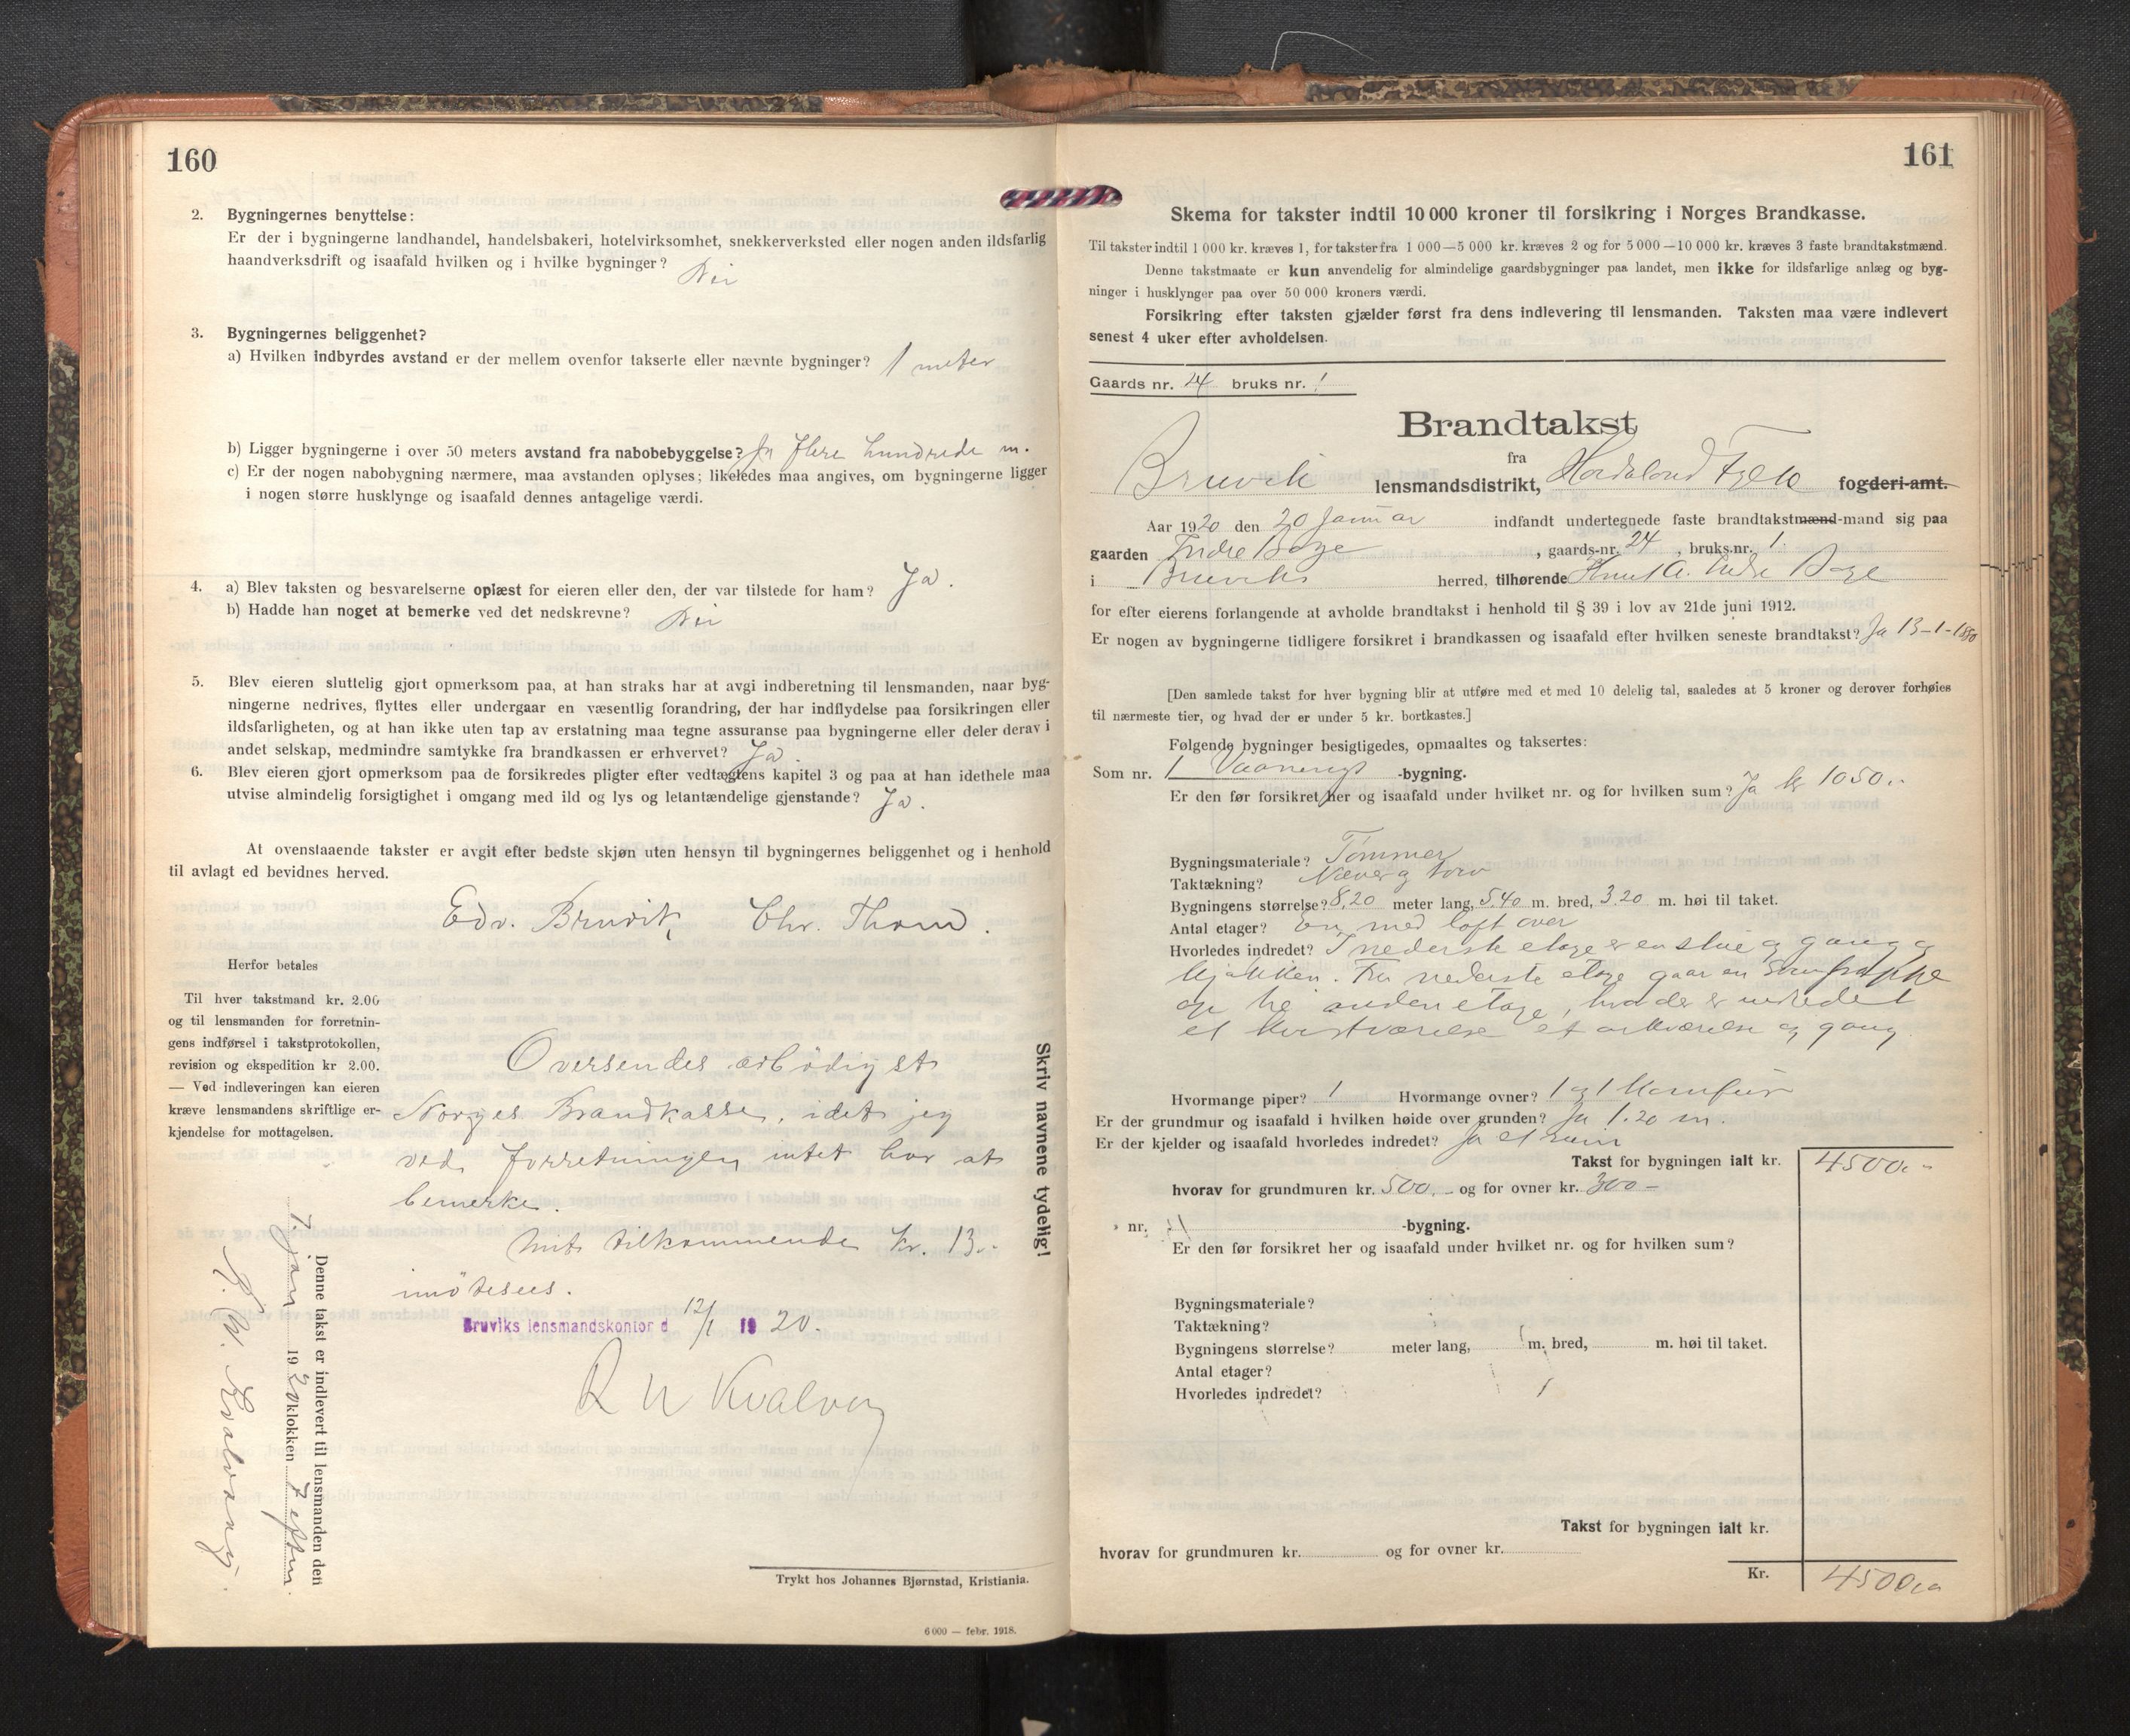 160
2. Bygningernes benyttelse:
Er der i bygningerne landhandel, handelsbakeri, hotelvirksomhet, snekkerverksted eller nogen anden ildsfarlig
haandverksdrift og isaafald hvilken og i hvilke bygninger? Nei
3. Bygningernes beliggenhet?
a) Hvilken indbyrdes avstand er der mellem ovenfor takserte eller nævnte bygninger? 1 meter
b) Ligger bygningerne i over 50 meters avstand fra nabobebyggelse? Ja flere hundrede m.
c) Er der nogen nabobygning nærmere, maa avstanden oplyses; likeledes maa angives, om bygningerne ligger
i nogen større husklynge og isaafald dennes antagelige værdi.
4. a) Blev taksten og besvarelserne oplæst for eieren eller den, der var tilstede for ham? Ja.
b) Hadde han noget at bemerke ved det nedskrevne? Nei
5. Blev eieren sluttelig gjort opmerksom paa, at han straks har at avgi indberetning til lensmanden, naar byg-
ningerne nedrives, flyttes eller undergaar en væsentlig forandring, der har indflydelse paa forsikringen eller
ildsfarligheten, og at han ikke uten tap av erstatning maa tegne assuranse paa bygningerne eller deler derav i
andet selskap, medmindre samtykke fra brandkassen er erhvervet? Ja.
6. Blev eieren gjort opmerksom paa de forsikredes pligter efter vedtægtens kapitel 3 og paa at han idethele maa
utvise almindelig forsigtighet i omgang med ild og lys og letantændelige gjenstande? Ja.
At ovenstaaende takster er avgit efter bedste skjøn uten hensyn til bygningernes beliggenhet og i henhold
til avlagt ed bevidnes herved.
Edv. Bruvik, Chr. Thom.
Herfor betales
Til hver takstmand kr. 2.00
og til lensmanden for forretnin-
gens indførsel i takstprotokollen,
revision og ekspedition kr 2.00.
— Ved indleveringen kan eieren
kræve lensmandens skriftlige er-
kjendelse for mottagelsen.
Oversendes ærbödigst
Norges Brandkasse, idet jeg
ved forretningen intet har at
bemerke.
Mit tilkommende kr. 13.-
imötesees.
Bruviks lensmandskontor d 12/1 1920.
R N Kvalvaag
Skriv navnene tydelig!
Denne takst er indlevert til lensmanden den
7 jan 1920 klokken 7 eftm.
R. N. Kvalvaag.
Trykt hos Johannes Bjørnstad, Kristiania.
6000 — febr. 1918.
161
Skema for takster indtil 10 000 kroner til forsikring i Norges Brandkasse.
Til takster indtil 1 000 kr. kræves 1, for takster fra 1 000—5 000 kr. kræves 2 og for 5 000—10 000 kr. kræves 3 faste brandtakstmænd.
Denne takstmaate er kun anvendelig for almindelige gaardsbygninger paa landet, men ikke for ildsfarlige anlæg og byg-
ninger i husklynger paa over 50 000 kroners værdi.
Forsikring efter taksten gjælder først fra dens indlevering til lensmanden. Taksten maa være indlevert
senest 4 uker efter avholdelsen.
Gaards nr. 24 bruks nr. 1
Brandtakst
fra
Bruvik lensmandsdistrikt, Hordaland Fylke fogderi-amt.
Aar 1920 den 20 Januar indfandt undertegnede faste brandtakstmænd-mand sig paa
gaarden Indre Boge, gaards-nr. 24, bruks.nr. 1
i Bruviks herred, tilhørende Knut A. Indre Boge
for efter eierens forlangende at avholde brandtakst i henhold til § 39 i lov av 21de juni 1912.
Er nogen av bygningerne tidligere forsikret i brandkassen og isaafald efter hvilken seneste brandtakst? Ja 13-1-1890
[Den samlede takst for hver bygning blir at utføre med et med 10 delelig tal, saaledes at 5 kroner og derover forhøies
til nærmeste tier, og hvad der er under 5 kr. bortkastes.]
Følgende bygninger besigtigedes, opmaaltes og taksertes:
Som nr. 1 Vaanings -bygning.
Er den før forsikret her og isaafald under hvilket nr. og for hvilken sum? Ja kr 1050.-
Bygningsmateriale? Tømmer
Taktækning? Næver og torv
Bygningens størrelse? 8,20 meter lang, 5.40 m. bred, 3.20 m. høi til taket.
Antal etager? En med loft over
Hvorledes indredet? I nederste etage er en stue og gang og
kjökken. Fra nederste etage gaar en
op til anden etage, hvor der er indredet
et kvistværelse et og gang
Hvormange piper? 1 Hvormange ovner? 1 og 1 komfur
Er der grundmur og isaafald i hvilken høide over grunden? Ja 1.20 m.
Er der kjelder og isaafald hvorledes indredet? Ja et rum
Takst for bygningen ialt kr. 4500.-
hvorav for grundmuren kr. 500.- og for ovner kr. 300-
» nr. -bygning.
Er den før forsikret her og isaafald under hvilket nr. og for hvilken sum?
Bygningsmateriale?
Taktækning?
Bygningens størrelse? meter lang, m. bred, m. høi til taket.
Antal etager?
Hvorledes indredet?
Takst for bygningen ialt kr.
hvorav for grundmuren kr. og for ovner kr.
Kr. 4500.-